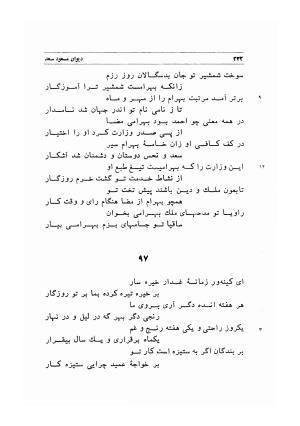 ۲۳۳ دیوان مسعود سعد
سوخت شمشیر تو جان بدسگالان روز رزم
زانکه بهرامست شمشیر ترا آموزگار
۹ برتر آمد مرتبت بهرام را از مهر و ماه
تا ز نامی نام تو اندر جهان شد نامدار
در همه معنی چو احمد بود بهرامی مضا
از پی صدر وزارت کرد او را اختیار
در کف کافی او زان خامهٔ بهرام سیر
سعد و نحس دوستان و دشمنان شد آشکار
۱۲ این وزارت را که بهرامیست تیغ طبع او
از نشاط خدمت تو گشت خرم روزگار
تابعون ملک و دین باشند پیش تخت تو
همچو بهرام از مضا هنگام رای و وقت کار
راویا تو مدحهای ملک بهرامی بخوان
ساقیا تو جامهای بزم بهرامسی بیار
۹۷
ای کینه‌ور زمانهٔ غدار خیره سار
بر خیره تیره کرده بما بر تو روزگار
هر هفته انده دگر آری بروی ما
رنجی دگر بهر گه در لیل و در نهار
۳ یکروز راحتی و یکی هفته رنج و غم
یکماه برقراری و یک سال بیقرار
بر بندگان اگر به ستیزه است کار تو
بر خواجهٔ عمید چرایی ستیزه کار